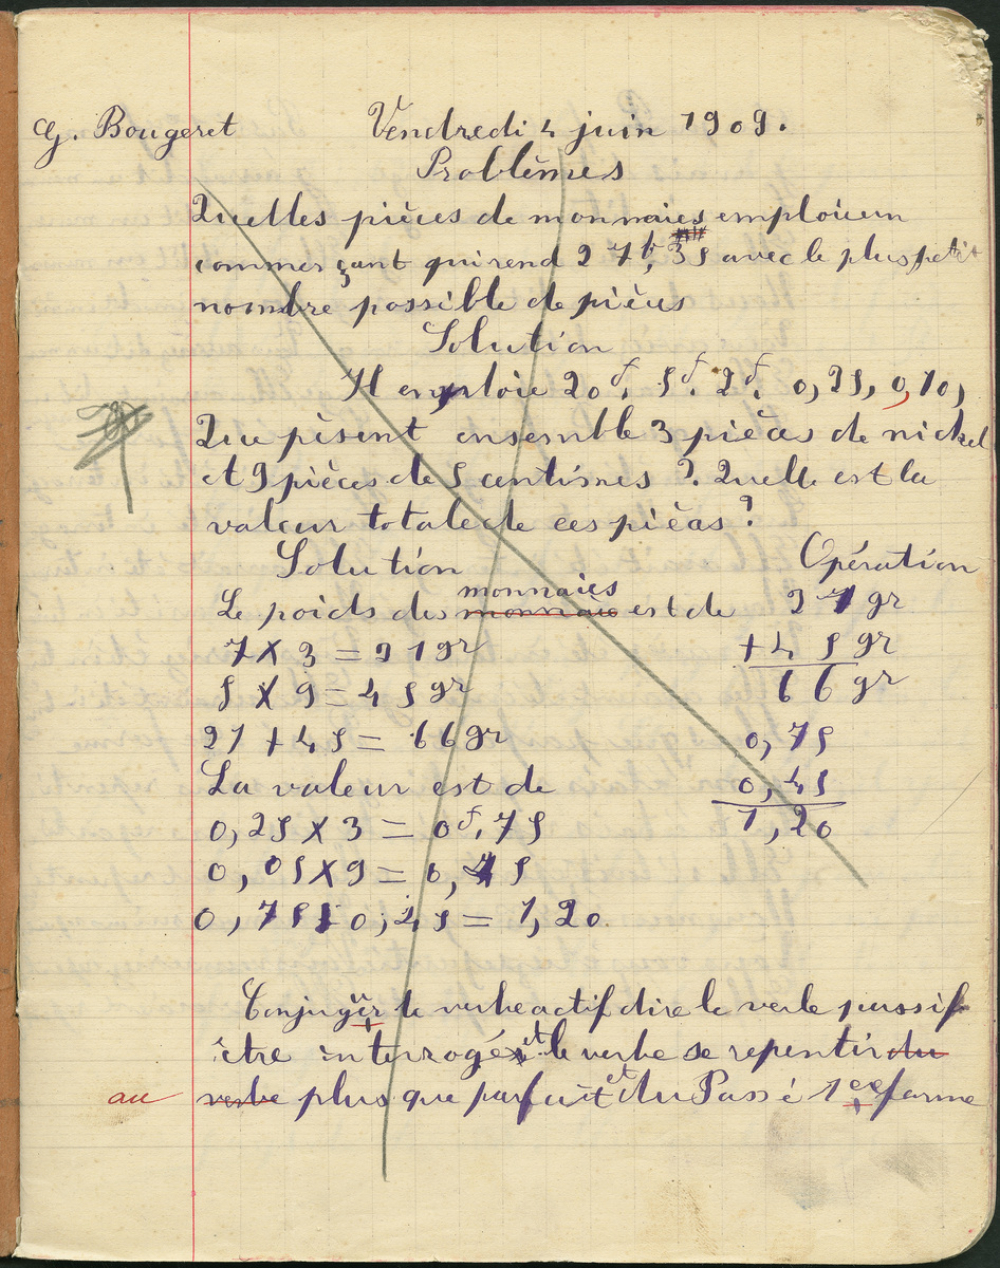 G. Bougeret Vendredi 4 juin 1909.
Problèmes
Quelles pièces de monnaies emploie un
commerçant qui rend 27f,35 avec le plus petit
nombre possible de pièces
Solution
Il emploie 20f. 5f. 2f. 0,25, 0,10,
Que pèsent ensemble 3 pièces de nickel
et 9 pièces de 5 centimes ? Quelle est la
valeur totale de ces pièces ?
Solution Opération
monnaies
Le poids des monnaie est de 21 gr
7 X 3 = 21 gr + 45 gr
5 X 9 = 45 gr 66 gr
21 + 45 = 66 gr 0,75
La valeur est de 0,45
0,25 X 3 = 0f,75 1,20
0,05 X 9 = 0,45
0,75 + 0,45 = 1,20
Conjuguer le verbe actif dire le verbe passif
être interrogé et le verbe se repentir du
au verbe plus que parfait et du Passé 1ere forme